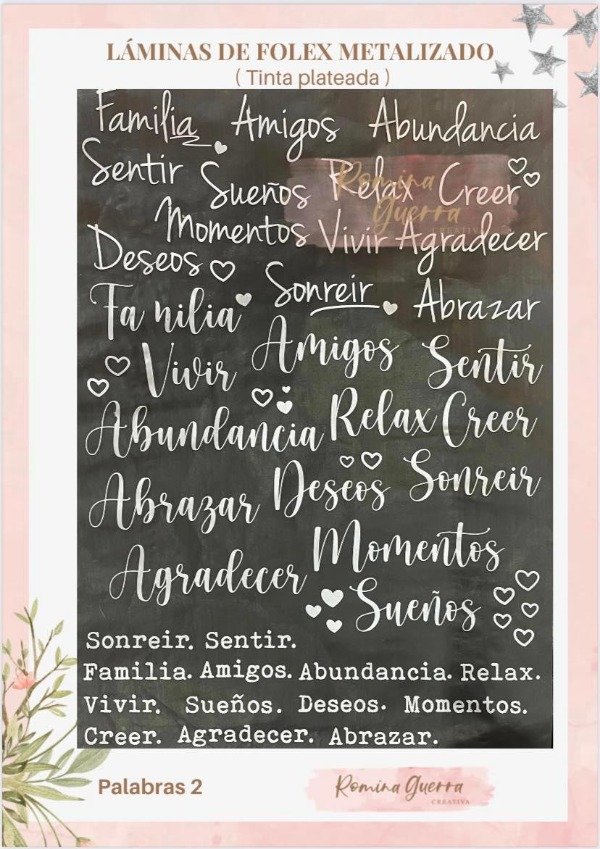 LÁMINAS DE FOLEX METALIZADO
( Tinta plateada )
Familia Amigos Abundancia
Sentir Sueños Relax Creer
Romina
Guerra
CREATIVA
Momentos Vivir Agradecer
Deseos Sonreir Abrazar
Fa nilia Amigos Sentir
Vivir
Abundancia Relax Creer
Abrazar Deseos Sonreir
Agradecer Momentos
Sueños
Sonreir. Sentir.
Familia. Amigos. Abundancia. Relax.
Vivir. Sueños. Deseos. Momentos.
Creer. Agradecer. Abrazar.
Palabras 2
Romina Guerra
CREATIVA